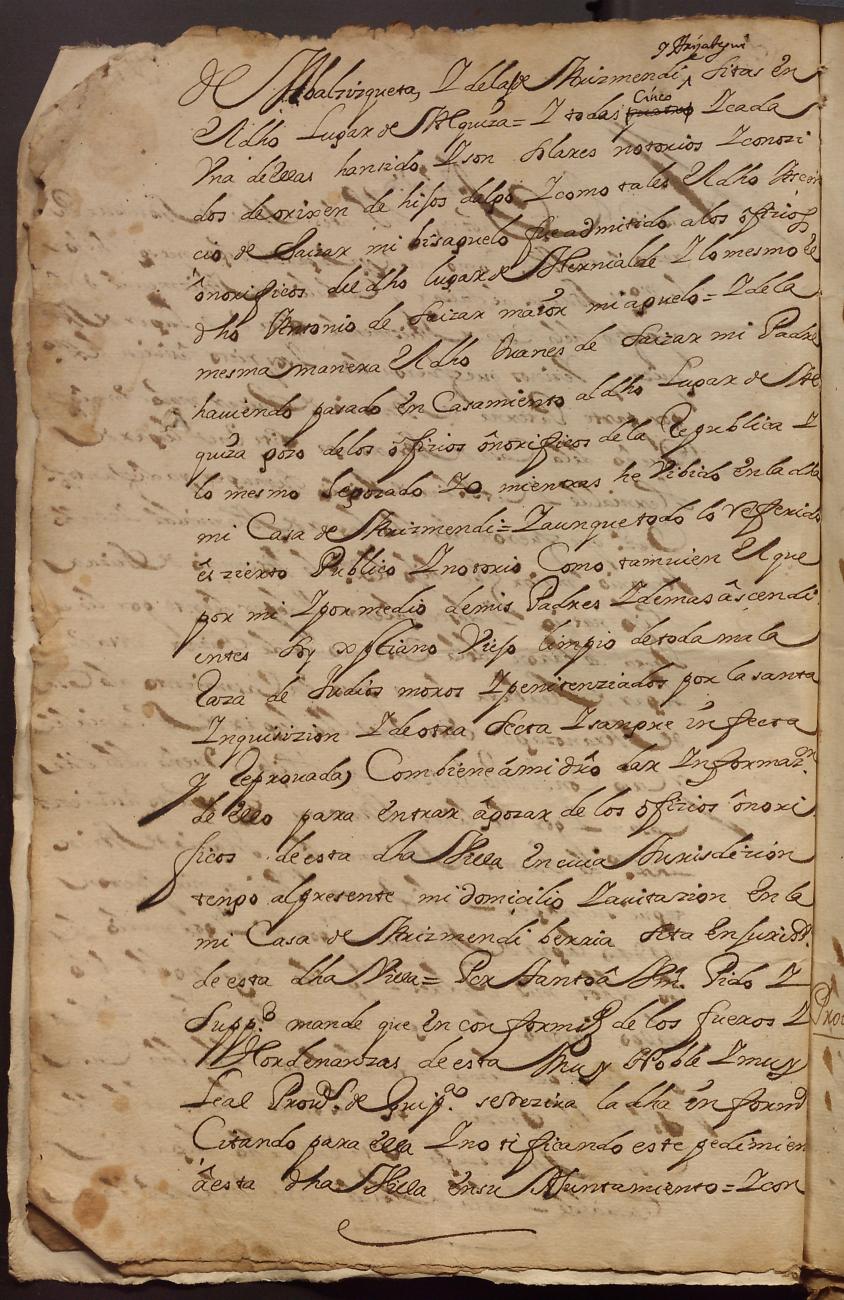 y Hirjategui
de Abalzizqueta, Y dela de Arizmendi sitas en
El dho Lugar de Alquiza = Y todas Cinco Y cada
Vna de ellas han sido Y son solares notorios Y conozi
dos de orixen de hijos dalgo Y como tales El dho
cio de Saizar mi bisaguelo fue admitido alos ofizios
onorificos del dho lugar de Hernialde Y lo mesmo el
dho Antonio de Saizar maior mi aguelo = Y de la
mesma manera El dho Juanes de Saizar mi Padre
haviendo pasado en Casamiento al dho Lugar de Al
quiza gozo de los ofizios onorificos de la Republica Y
lo mesmo he gozado Yo mientras he Vibido en la dha
mi Casa de Arizmendi = Y aunque todo lo referido
es zierto Publico Y notorio Como tamvien El que
por mi Y por medio de mis Padres Y demas ascendi
entes soy xptiano Viejo limpio de toda mala
Raza de Judios moros Y penitenziados por la santa
Ynquisizion Y de otra secta Y sangre infecta
y Reprouada, Combiene a mi dro dar Informazn
de ello para entrar a gozar de los ofizios onori
ficos de esta dha Villa en cuia Jurisdizion
tengo al presente mi domicilio Y auitazion en la
mi Casa de Arizmendi berria sita en Juridn
de esta dha Villa = Por tanto a Vm. Pido Y
Suppco mande que en conformid de los fueros Y
Hordenanzas de esta Muy Noble Y muy
Leal Prouª. de Guipª. se rezira la dha informn
Citando para ella Y notificando este pedimien
a esta dha Villa en su Aiuntamiento = Y con